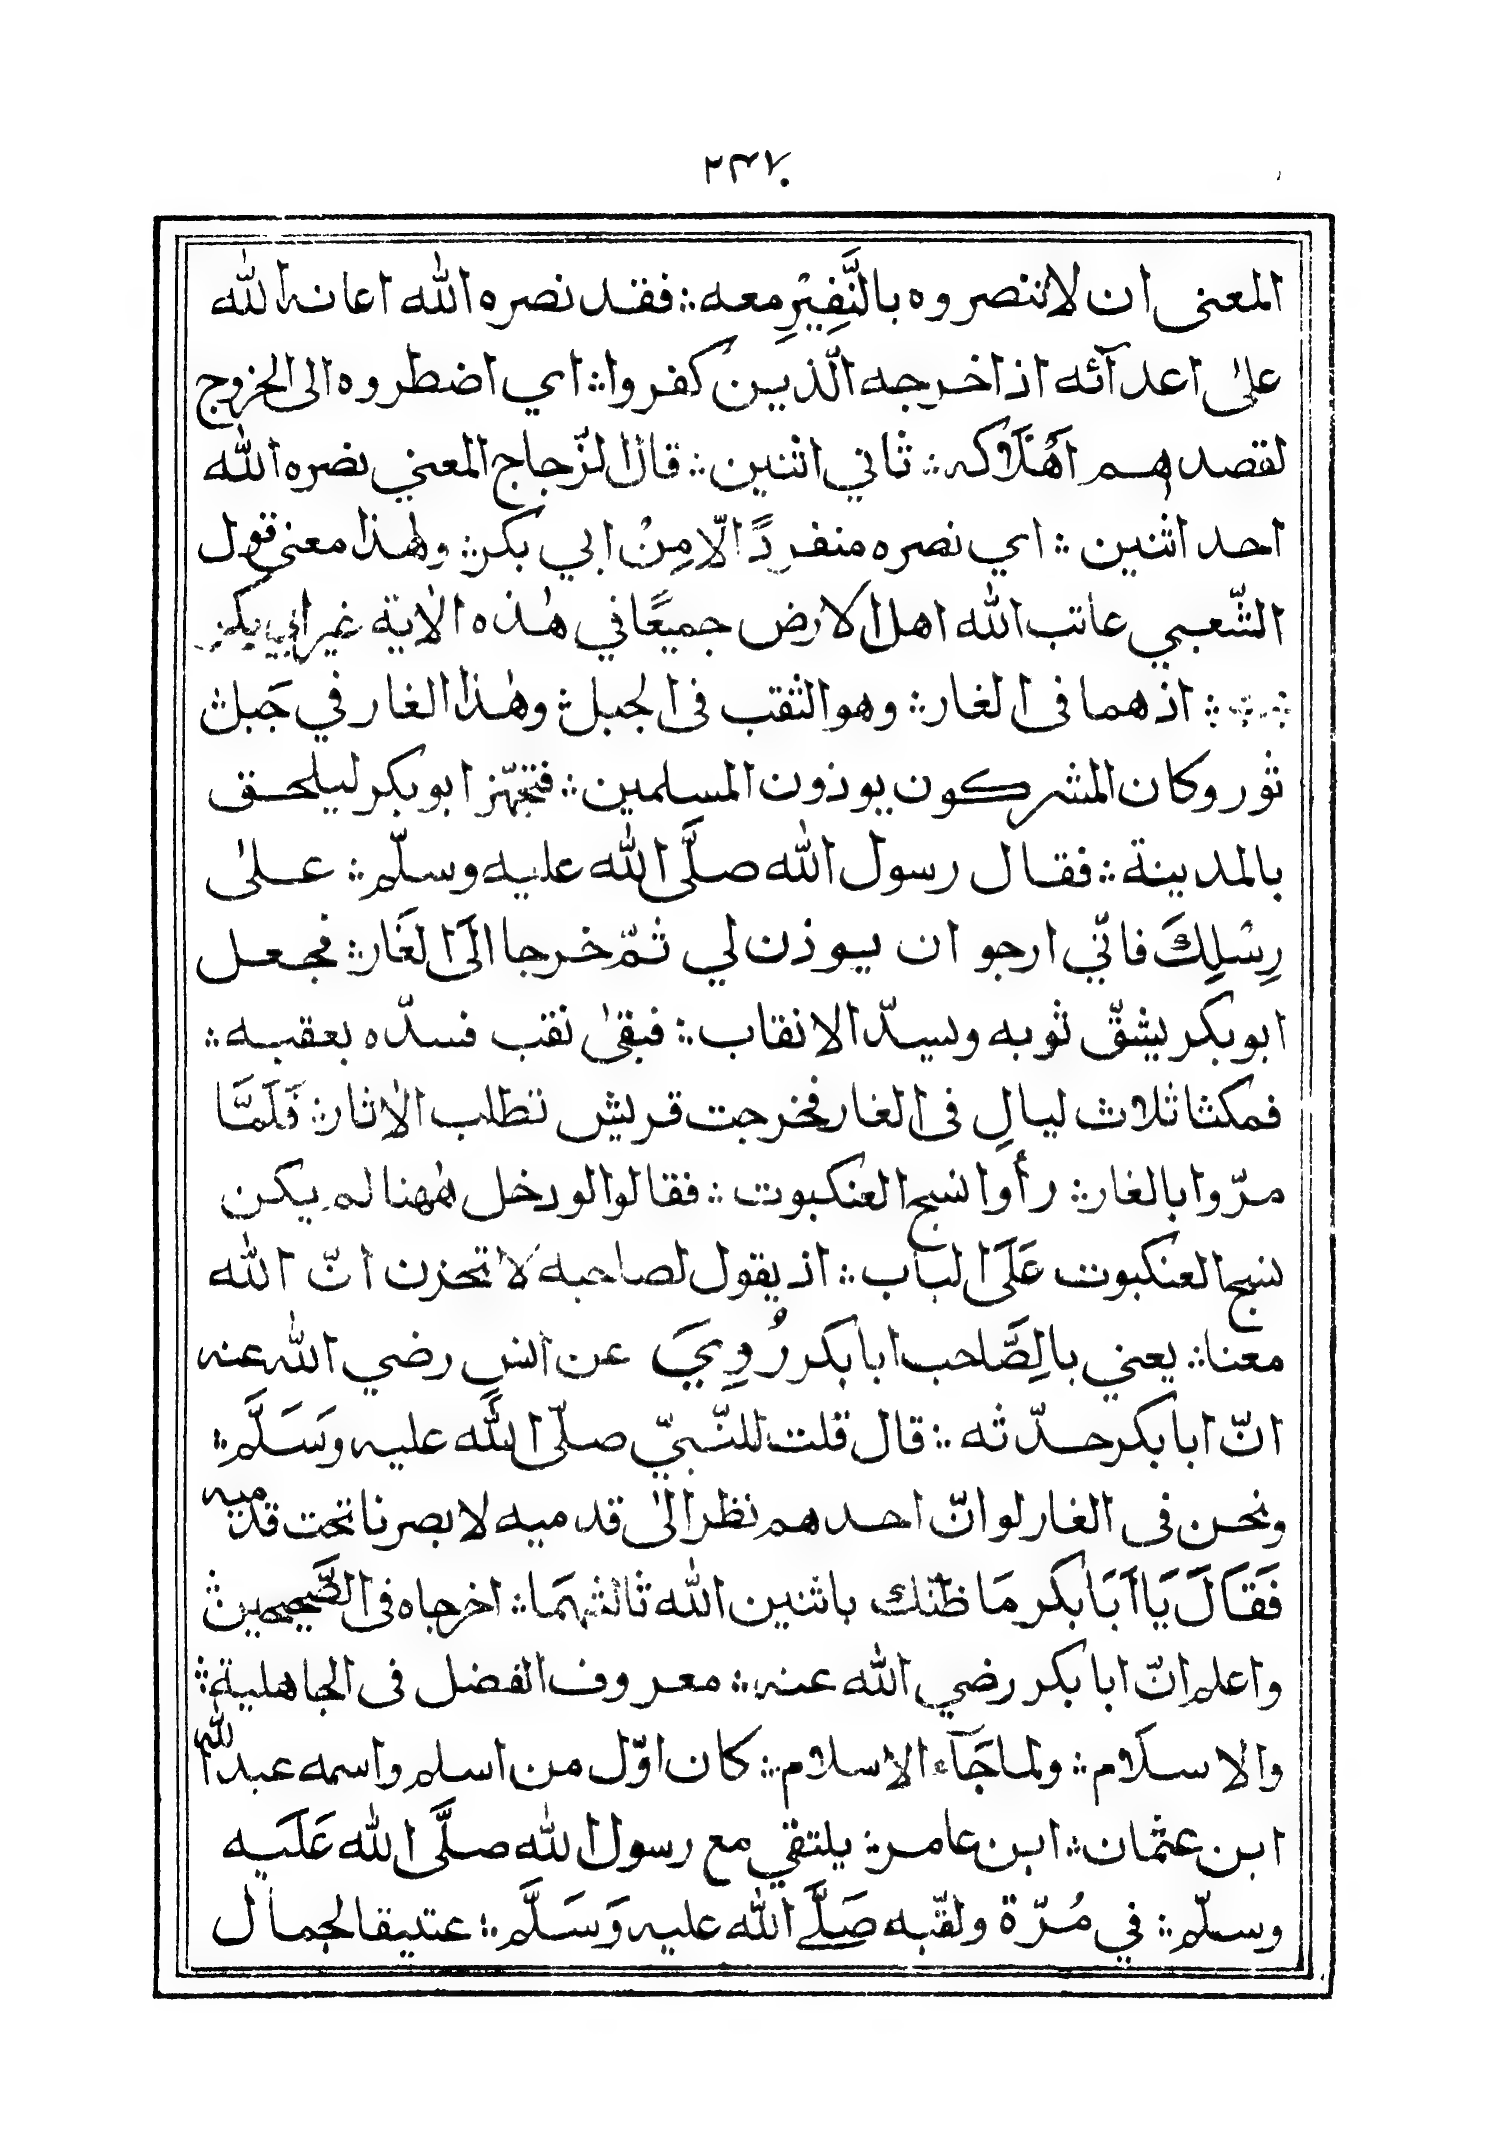 ٢٣٧
المعنى ان لا تنصروه بالنَّفِيْرِ معه ؛ فقد نصره الله اعانه الله
على اعدآئه اذ اخرجه الّذين كفروا ؛ اي اضطروه الى الخروج
لقصدهم اَهْلَاكه ؛ ثاني اثنين ؛ قال الزّجاج المعنى نصره الله
احد اثنين ؛ اي نصره منفردًا الّا مِنْ ابي بكر ؛ وهٰذا معنى قول
الشّعبي عاتب الله اهل الارض جميعًا في هٰذه الاٰية غير ابي بكر
؛ اذ هما فى الغار ؛ وهو الثقب فى الجبل ؛ وهٰذا الغار في جَبل
ثور وكان المشركون يوذون المسلمين ؛ فتجهّز ابو بكر ليلحق
بالمدينة ؛ فقال رسول الله صلَّى الله عليه وسلّم ؛ علىٰ
رِسْلِكَ فانّي ارجو ان يوذن لي ثمّ خرجا الَى الغَار ؛ فجعل
ابو بكر يشقّ ثوبه ويسدّ الانقاب ؛ فبقىٰ نقب فسدّه بعقبه ؛
فمكثا ثلاث ليالٍ فى الغار فخرجت قريش تطلب الاٰثار ؛ فَلَمَّا
مرّوا بالغار ؛ رأوا نسج العنكبوت ؛ فقالوا لو دخل هٰهنا لم يكن
نسج العنكبوت عَلَى الباب ؛ اذ يقول لصاحبه لا تحزن انّ الله
معنا ؛ يعني بالِصَّاحب ابا بكر رُوِيَ عن انسٍ رضي الله عنه
انّ ابا بكر حدّثه ؛ قال قلت للنّبيّ صلّى الله عليه وَسَلَّم ؛
ونحن فى الغار لو انّ احدهم نظر الىٰ قدميه لابصرنا تحت قدميه
فَقَالَ يَا اَبَا بكر مَا ظنّك باثنين الله ثالثهمَا ؛ اخرجاه فى الصّحيحين
واعلم انّ ابا بكر رضي الله عنه ؛ معروف الفضل فى الجاهلية ؛
والاسلام ؛ ولما جَآء الاسلام ؛ كان اوّل من اسلم واسمه عبد الله
ابن عثمان ؛ ابن عامر ؛ يلتقي مع رسول الله صلَّى الله عَلَيه
وسلّم ؛ في مُرّة ولقّبه صَلَّى الله عليه وَسَلَّم ؛ عتيقا لجمال